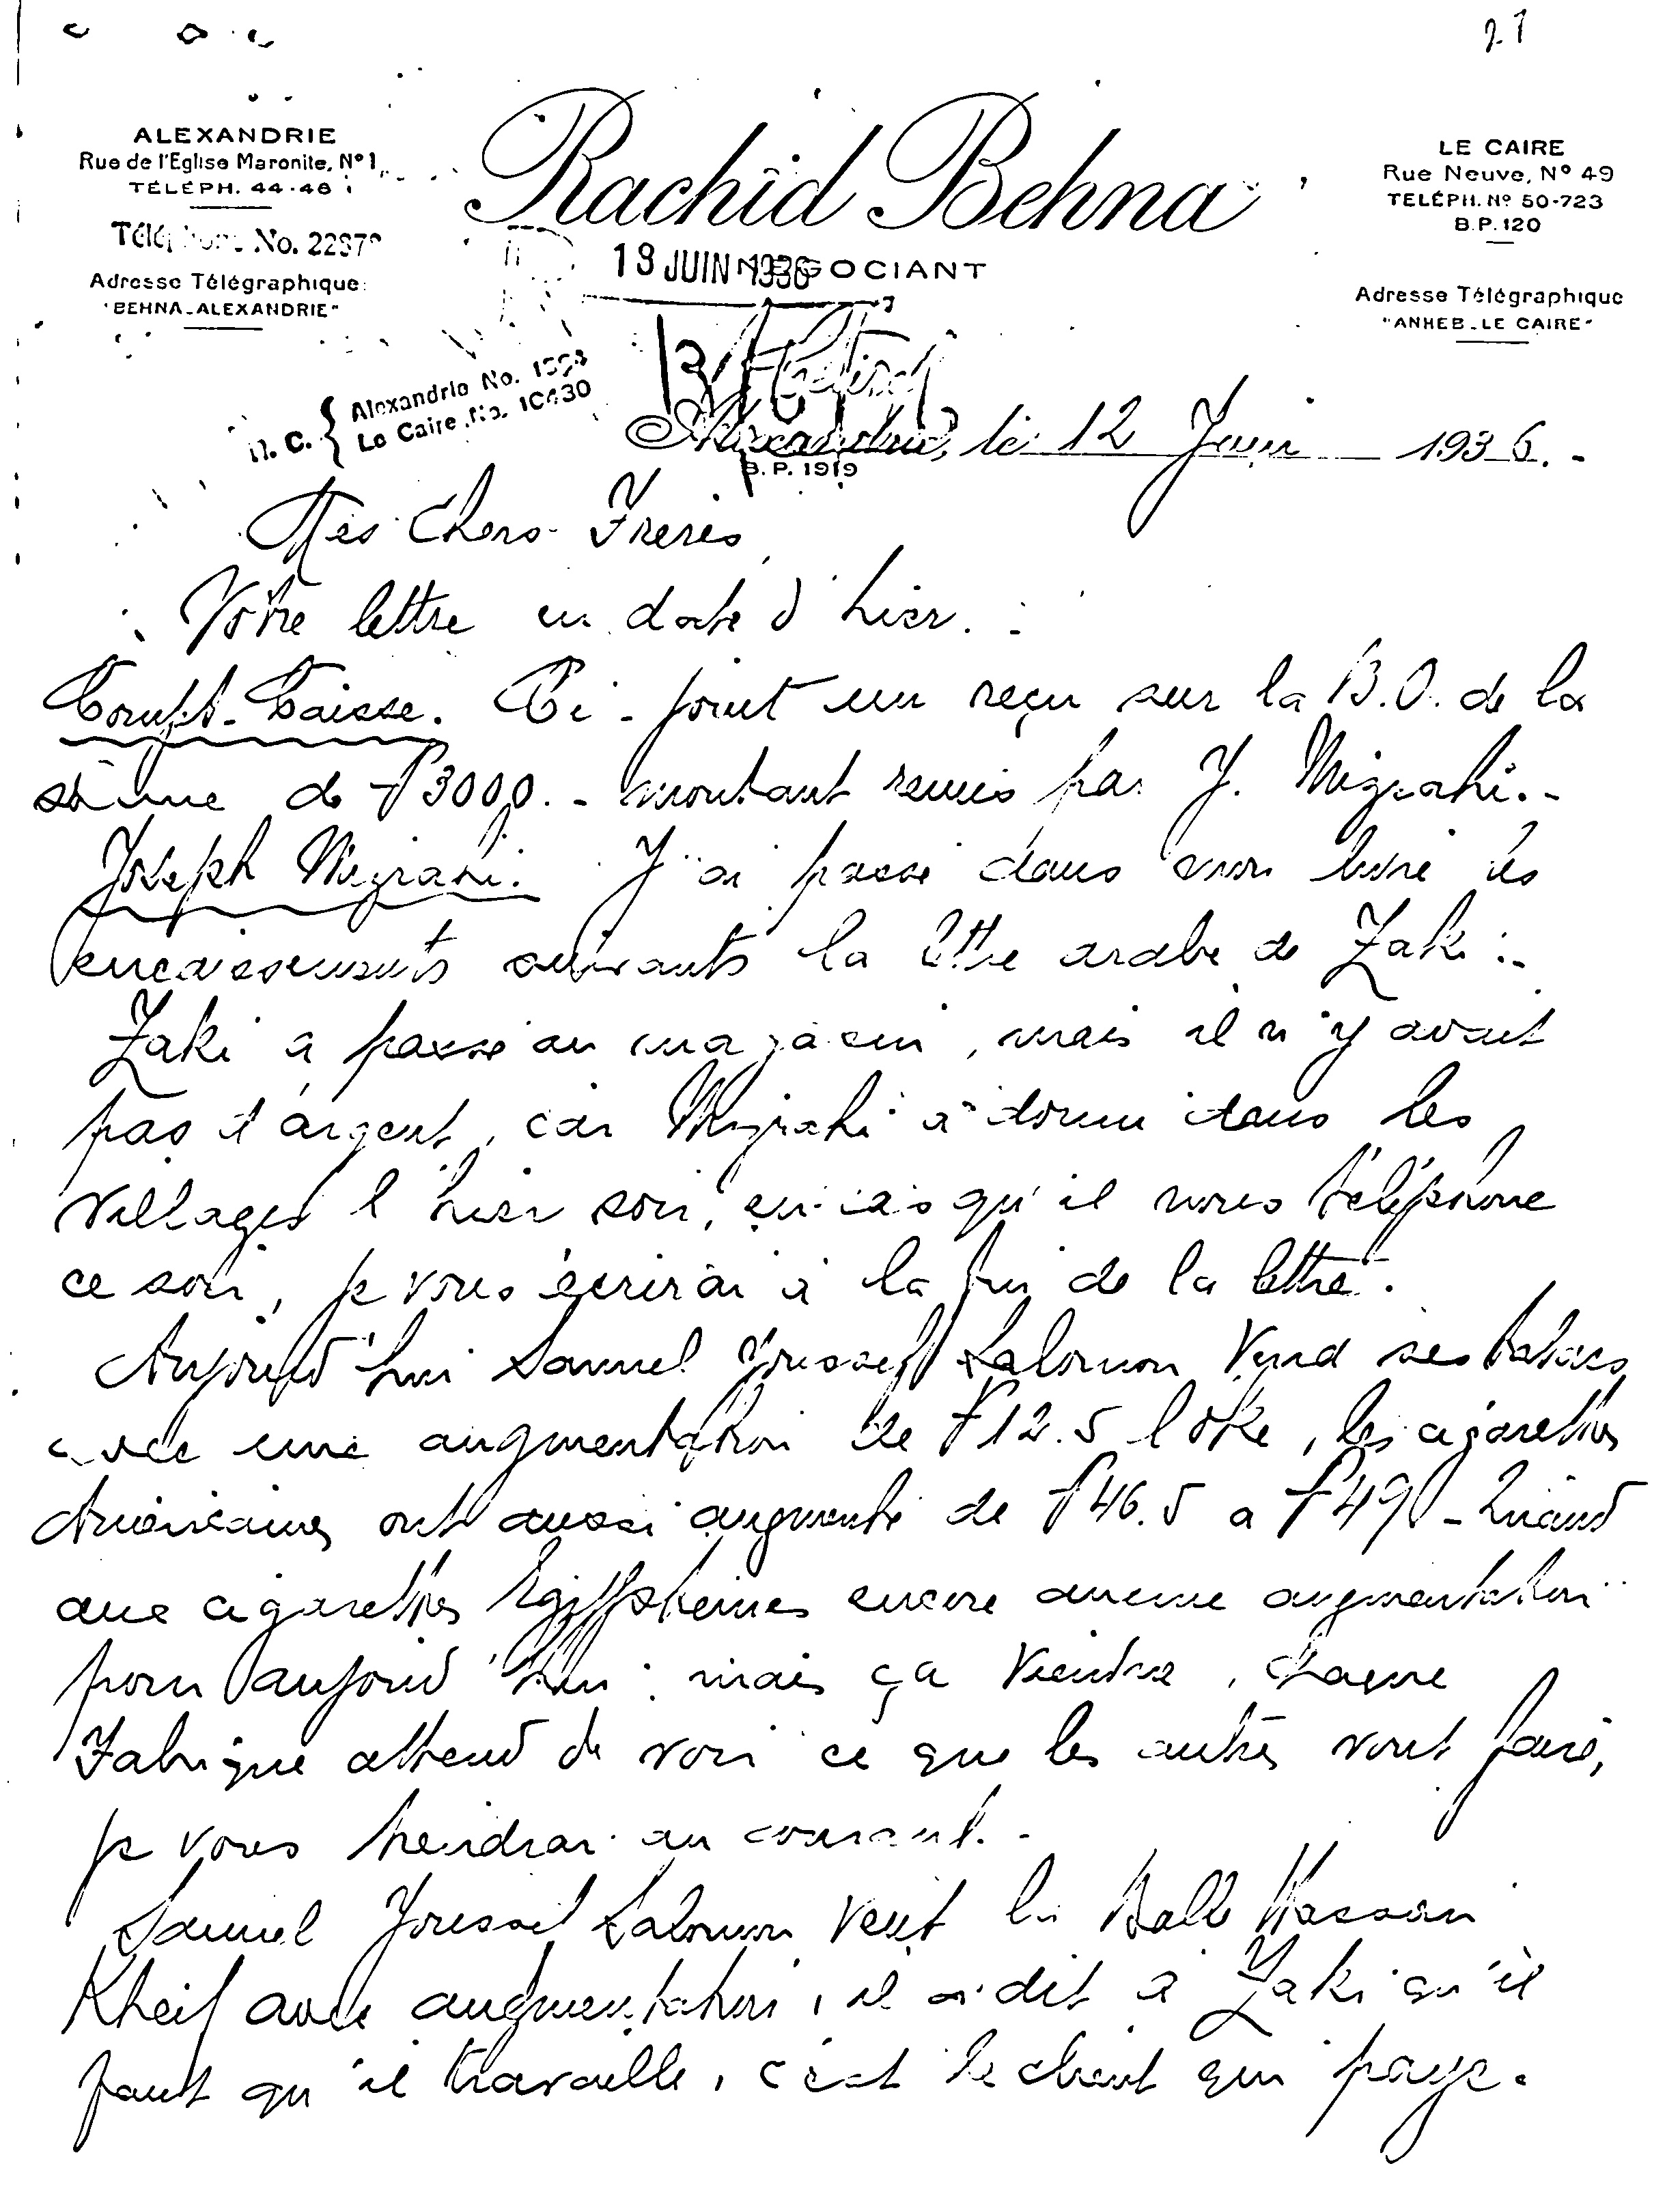 21
ALEXANDRIE
Rue de l'Eglise Maronite, Nº 1
TÉLÉPH. 44-46
Téléphone No. 2297
Adresse Télégraphique:
"BEHNA-ALEXANDRIE"
Rachid Behna
NÉGOCIANT
13 JUIN 1936
LE CAIRE
Rue Neuve, Nº 49
TELÉPH. Nº 50-723
B.P. 120
Adresse Télégraphique
"ANHEB-LE CAIRE"
R. C. { Alexandrie No.
Le Caire No. 10430
Alexandrie, le 12 Juin 1936.-
B.P. 1919
Mes Chers Freres,
Votre lettre en date d'hier. :
Compt-Caisse. Ci-joint un reçu sur la B.O. de la
somme de P 3000.- montant remis par J. Mizrahi.-
Joseph Mizrahi. J'ai passé dans mon livre les
encaissements suivants la lettre arabe de Zaki:-
Zaki a passé au magasin, mais il n'y avait
pas d'argent, car Mizrahi a dormi dans les
villages l'hier soir, en cas qu'il nous téléphone
ce soir, je vous écrirai à la fin de la lettre.
Aujourd'hui Samuel Youssef Salomon vend ses tabacs
avec une augmentation de P 12.5 l'oke, les cigarettes
Américaines ont aussi augmenté de P 46.5 a P 49 - Quand
aux cigarettes Egyptiennes encore aucune augmentation
pour aujourd'hui: mais ça viendra, chaque
Fabrique attend de voir ce que les autres vont faire,
je vous tiendrai au courant.-
Samuel Youssef Salomon veut la Balle Hassan
Kheif avec augmentation, il a dit à Zaki qu'il
faut qu'il travaille, c'est le client qui paye.